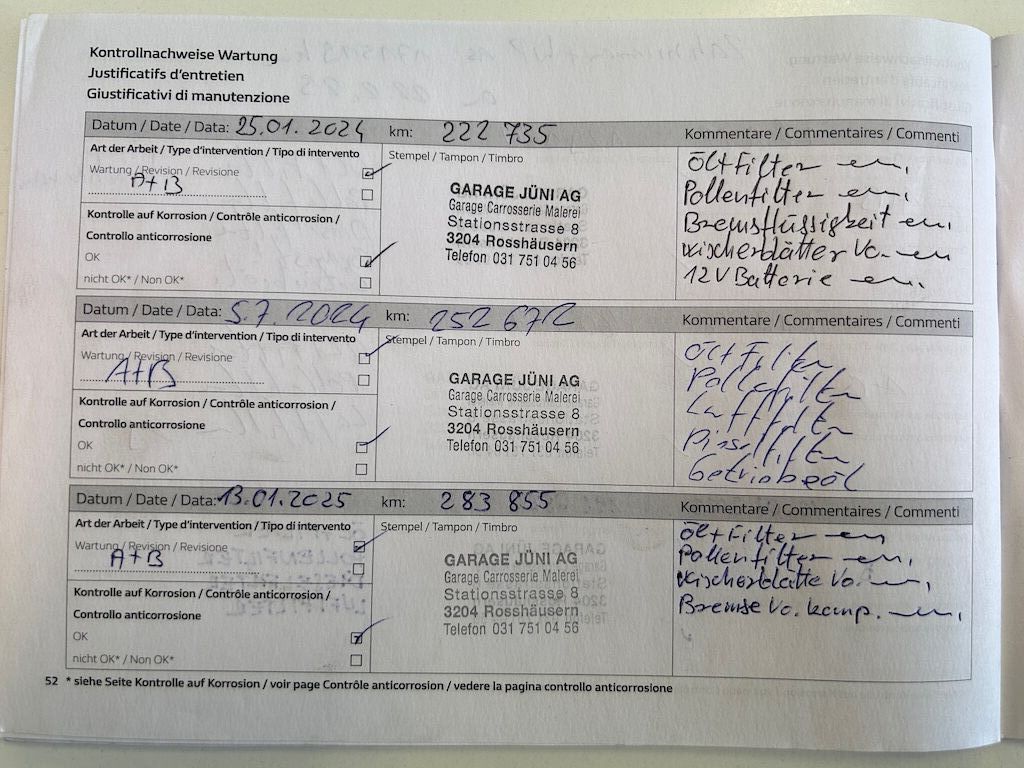 Kontrollnachweise Wartung
Justificatifs d'entretien
Giustificativi di manutenzione
Datum / Date / Data: 25.01.2024 km: 222 735 Kommentare / Commentaires / Commenti
Art der Arbeit / Type d'intervention / Tipo di intervento
Wartung / Revision / Revisione
A+B
Kontrolle auf Korrosion / Contrôle anticorrosion /
Controllo anticorrosione
OK
nicht OK* / Non OK*
Stempel / Tampon / Timbro
GARAGE JÜNI AG
Garage Carrosserie Malerei
Stationsstrasse 8
3204 Rosshäusern
Telefon 031 751 04 56
Öl+Filter ern.
Pollenfilter ern.
Bremsflüssigkeit ern.
Wischerblätter Vo. ern
12V Batterie ern.
Datum / Date / Data: 5.7.2024 km: 252 672 Kommentare / Commentaires / Commenti
Art der Arbeit / Type d'intervention / Tipo di intervento
Wartung / Revision / Revisione
A+B
Kontrolle auf Korrosion / Contrôle anticorrosion /
Controllo anticorrosione
OK
nicht OK* / Non OK*
Stempel / Tampon / Timbro
GARAGE JÜNI AG
Garage Carrosserie Malerei
Stationsstrasse 8
3204 Rosshäusern
Telefon 031 751 04 56
Öl+Filter
Pollenfilter
Luftfilter
Getriebeöl
Datum / Date / Data: 13.01.2025 km: 283 855 Kommentare / Commentaires / Commenti
Art der Arbeit / Type d'intervention / Tipo di intervento
Wartung / Revision / Revisione
A+B
Kontrolle auf Korrosion / Contrôle anticorrosion /
Controllo anticorrosione
OK
nicht OK* / Non OK*
Stempel / Tampon / Timbro
GARAGE JÜNI AG
Garage Carrosserie Malerei
Stationsstrasse 8
3204 Rosshäusern
Telefon 031 751 04 56
Öl+Filter ern
Pollenfilter ern.
Wischerblätte Vo. ern.
Bremse Vo. komp. ern.
52 * siehe Seite Kontrolle auf Korrosion / voir page Contrôle anticorrosion / vedere la pagina controllo anticorrosione